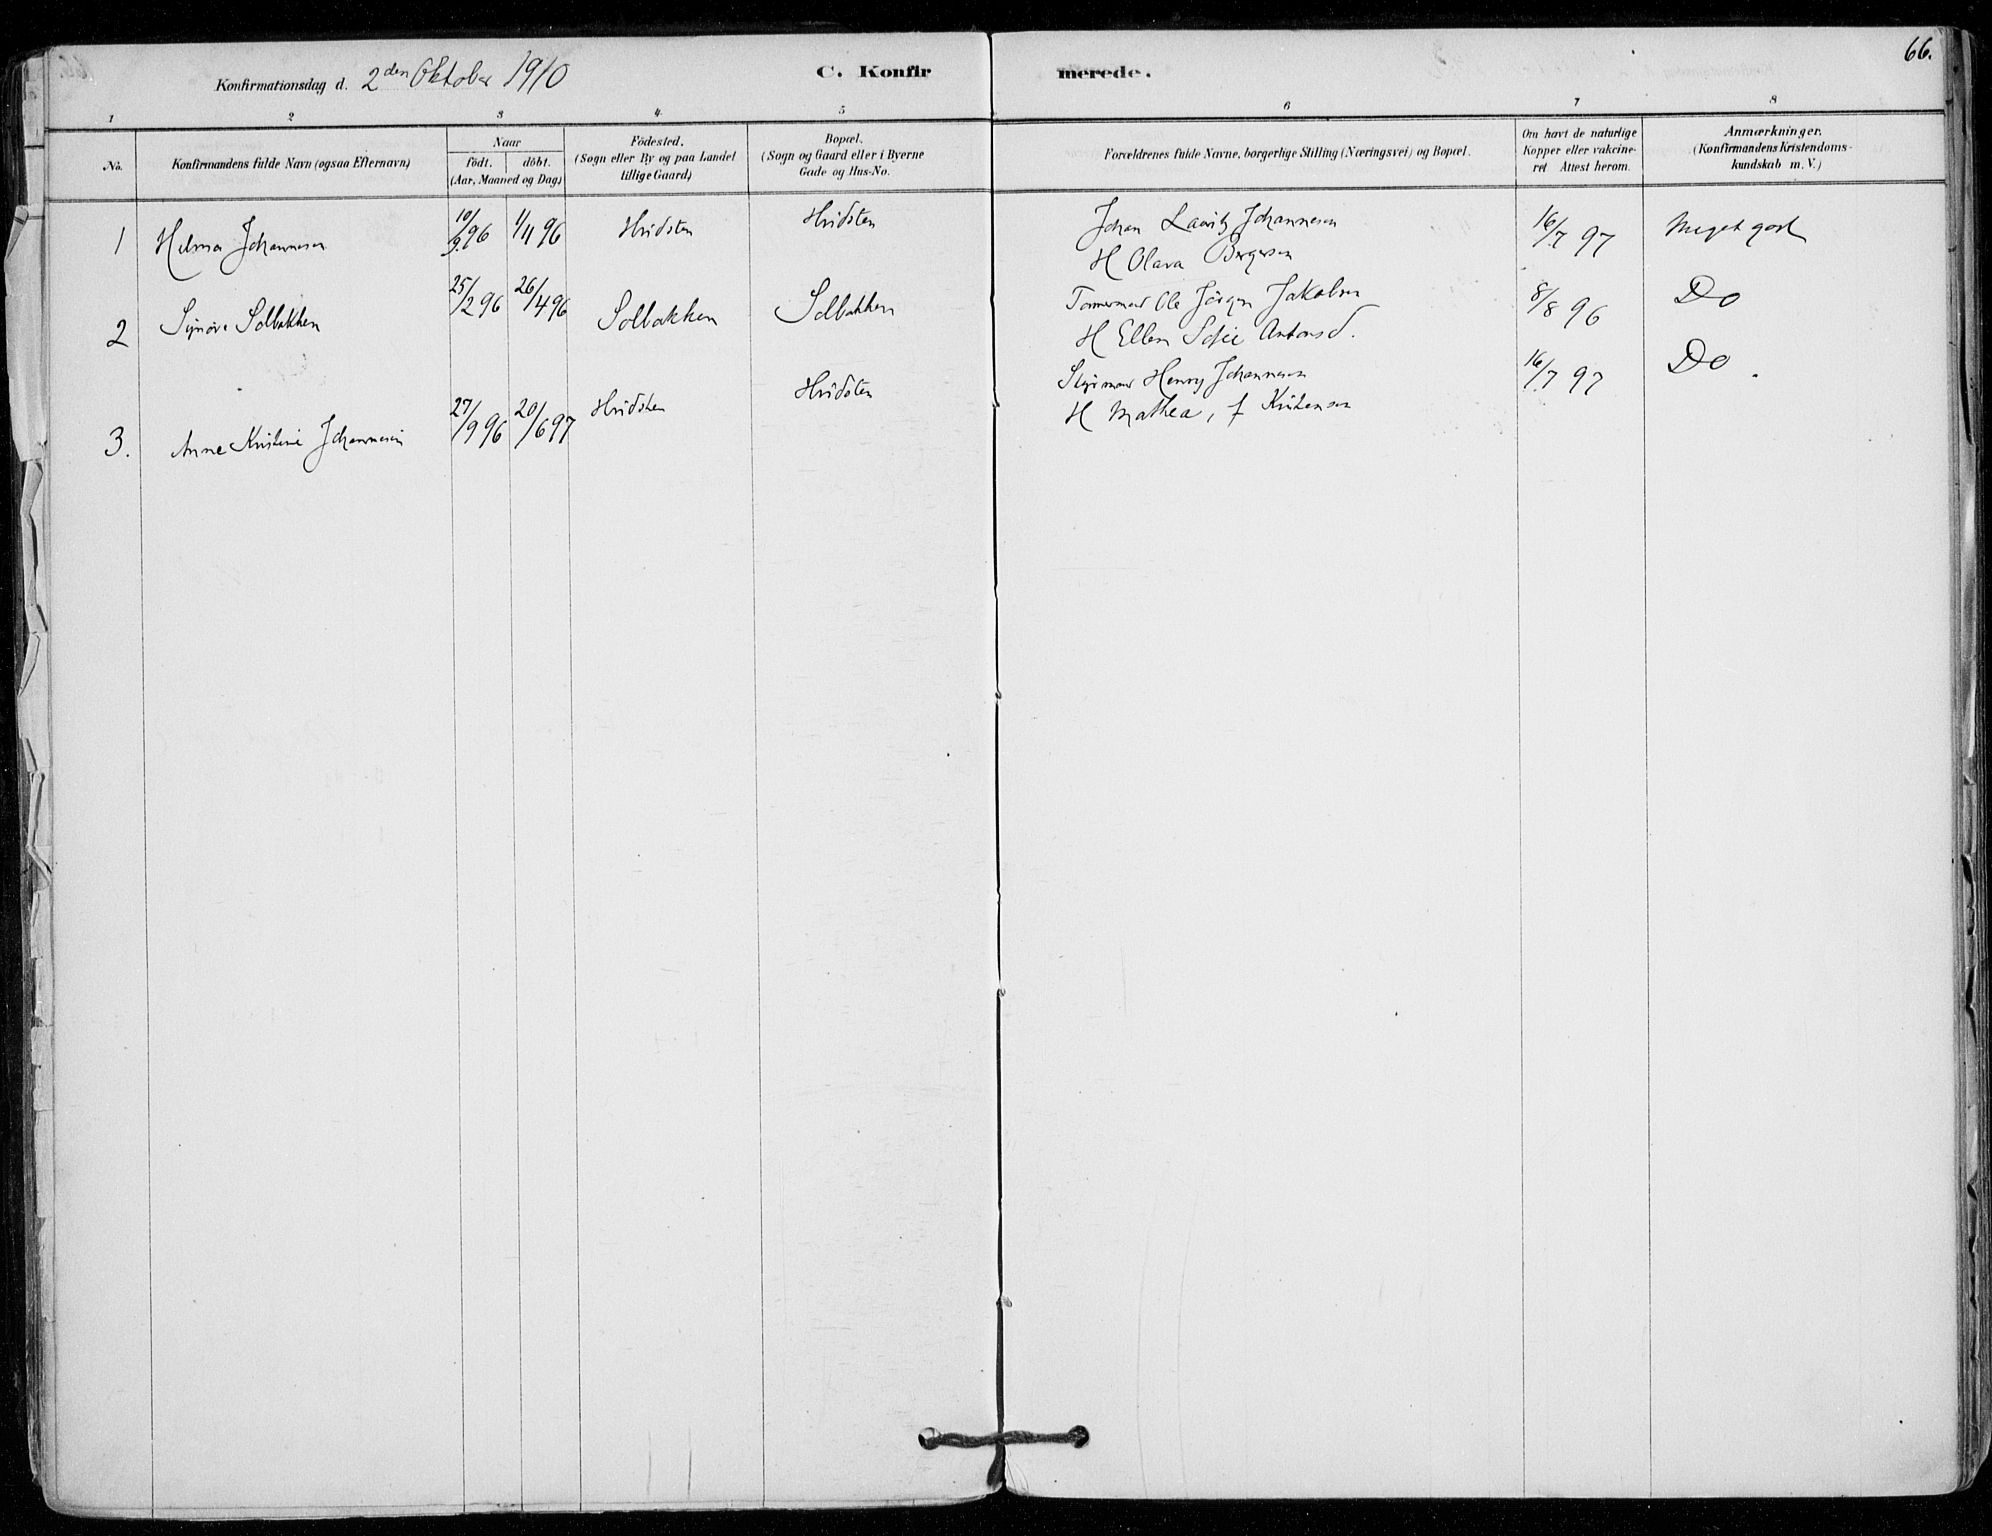 66.
Konfirmationsdag d. 2den Oktober 1910
C. Konfirmerede.
1 2 3 4 5 6 7 8
No.
Konfirmandens fulde Navn (ogsaa Efternavn)
Naar
födt. döbt.
(Aar, Maaned og Dag)
Födested.
(Sogn eller By og paa Landet
tillige Gaard)
Bopæl.
(Sogn og Gaard eller i Byerne
Gade og Hus-No.
Forældrenes fulde Navne, borgerlige Stilling (Næringsvei) og Bopæl.
Om havt de naturlige
Kopper eller vakcine-
ret Attest herom.
Anmærkninger.
(Konfirmandens Kristendoms-
kundskab m. V.)
1 Helma Johannesen 10/9 96 1/11 96 Hvidsten Hvidsten Johan Lauritz Johannesen 16/7 97 Meget godt
H Olava Bergersen
2 Signöve Solbakken 25/2 96 26/4 96 Solbakken Solbakken Tömermand Ole Jörgen Jakobsen 8/8 96 Do
H Ellen Sofie Antonsd.
3. Anne Kristine Johannesen 27/9 96 20/6 97 Hvidsten Hvidsten Styrmand Henry Johannesen 16/7 97 Do.
H Mathea, f Kristensen